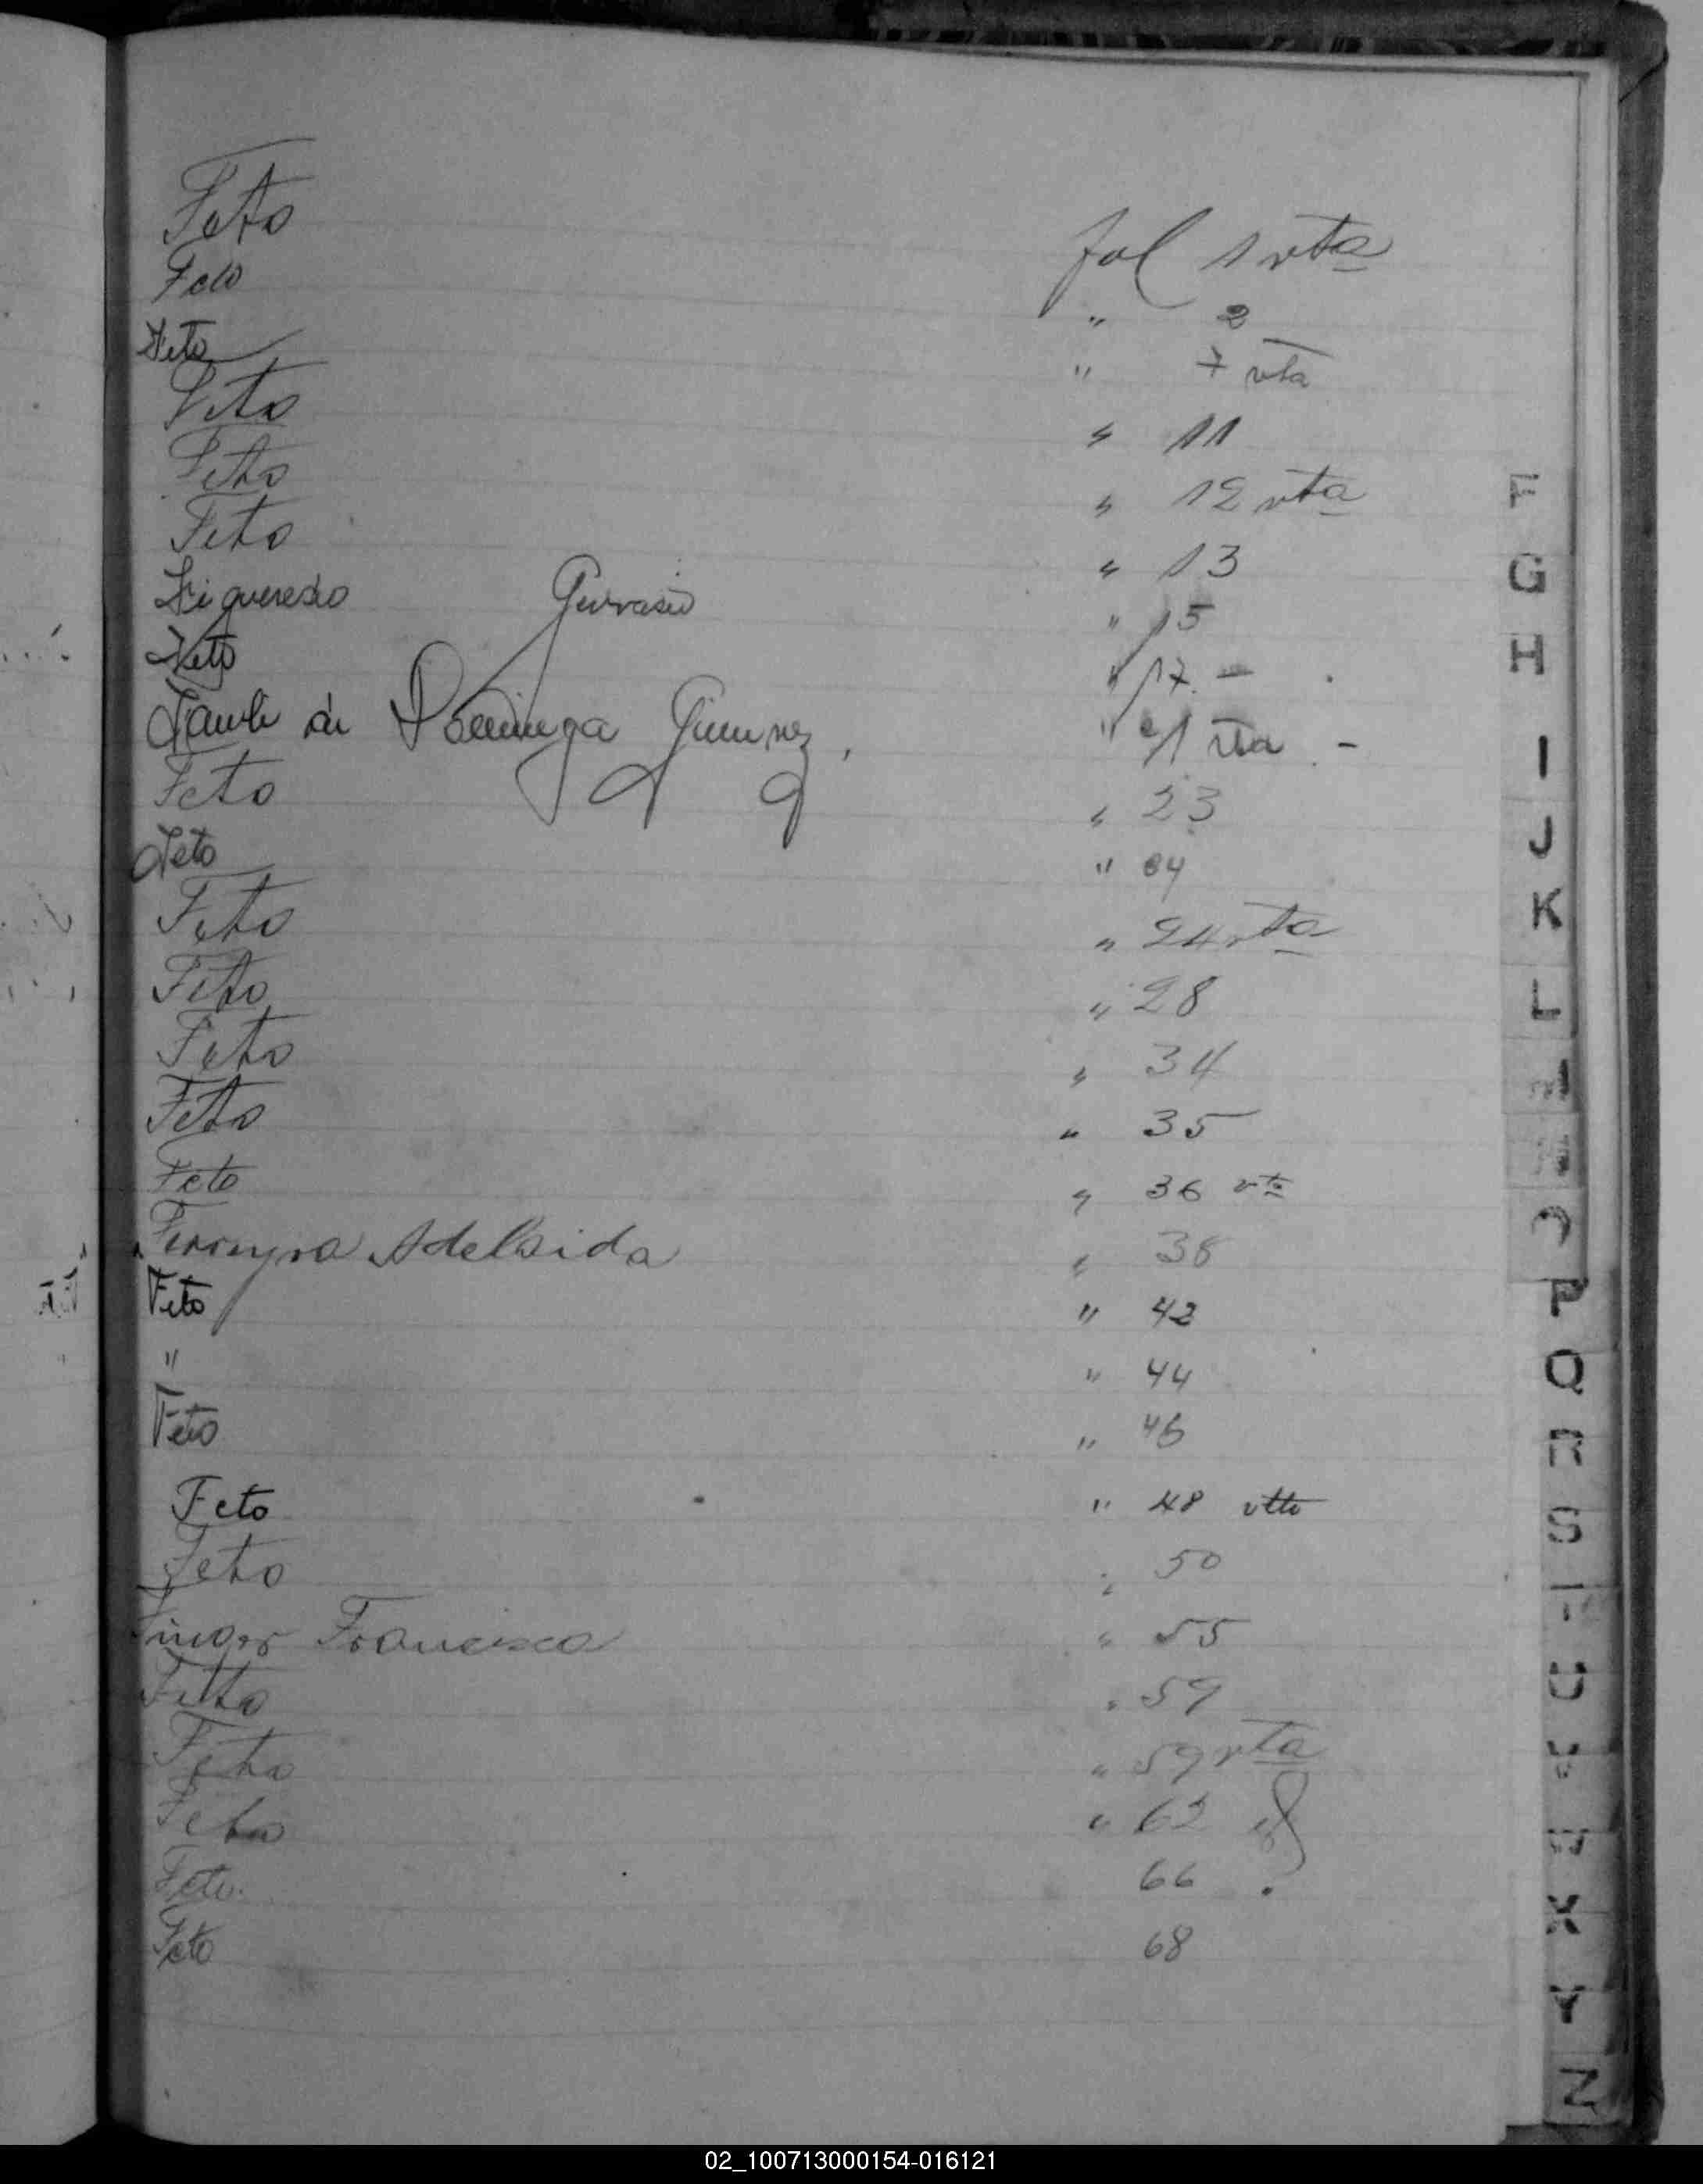 Feto fol 1 vta
Feto " 2
Feto " 7 vta
Feto " 11
Feto " 12 vta
Feto " 13
Figueredo Gervasio " 15
Feto " 17 -
de Dominga Gimenez " 21 vta -
Feto " 23
Feto " 24
Feto " 24 vta
Feto " 28
Feto " 34
Feto " 35
Feto " 36 vta
Ferreyra Adelaida " 38
Feto " 42
" " 44
Feto " 46
Feto " 48 vtto
Feto " 50
Francisca " 55
Feto " 59
Feto " 59 vta
Feto " 62
Feto 66
Feto 68
F
G
H
I
J
K
L
M
N
O
P
Q
R
S
T
U
V
W
X
Y
Z
02_100713000154-016121